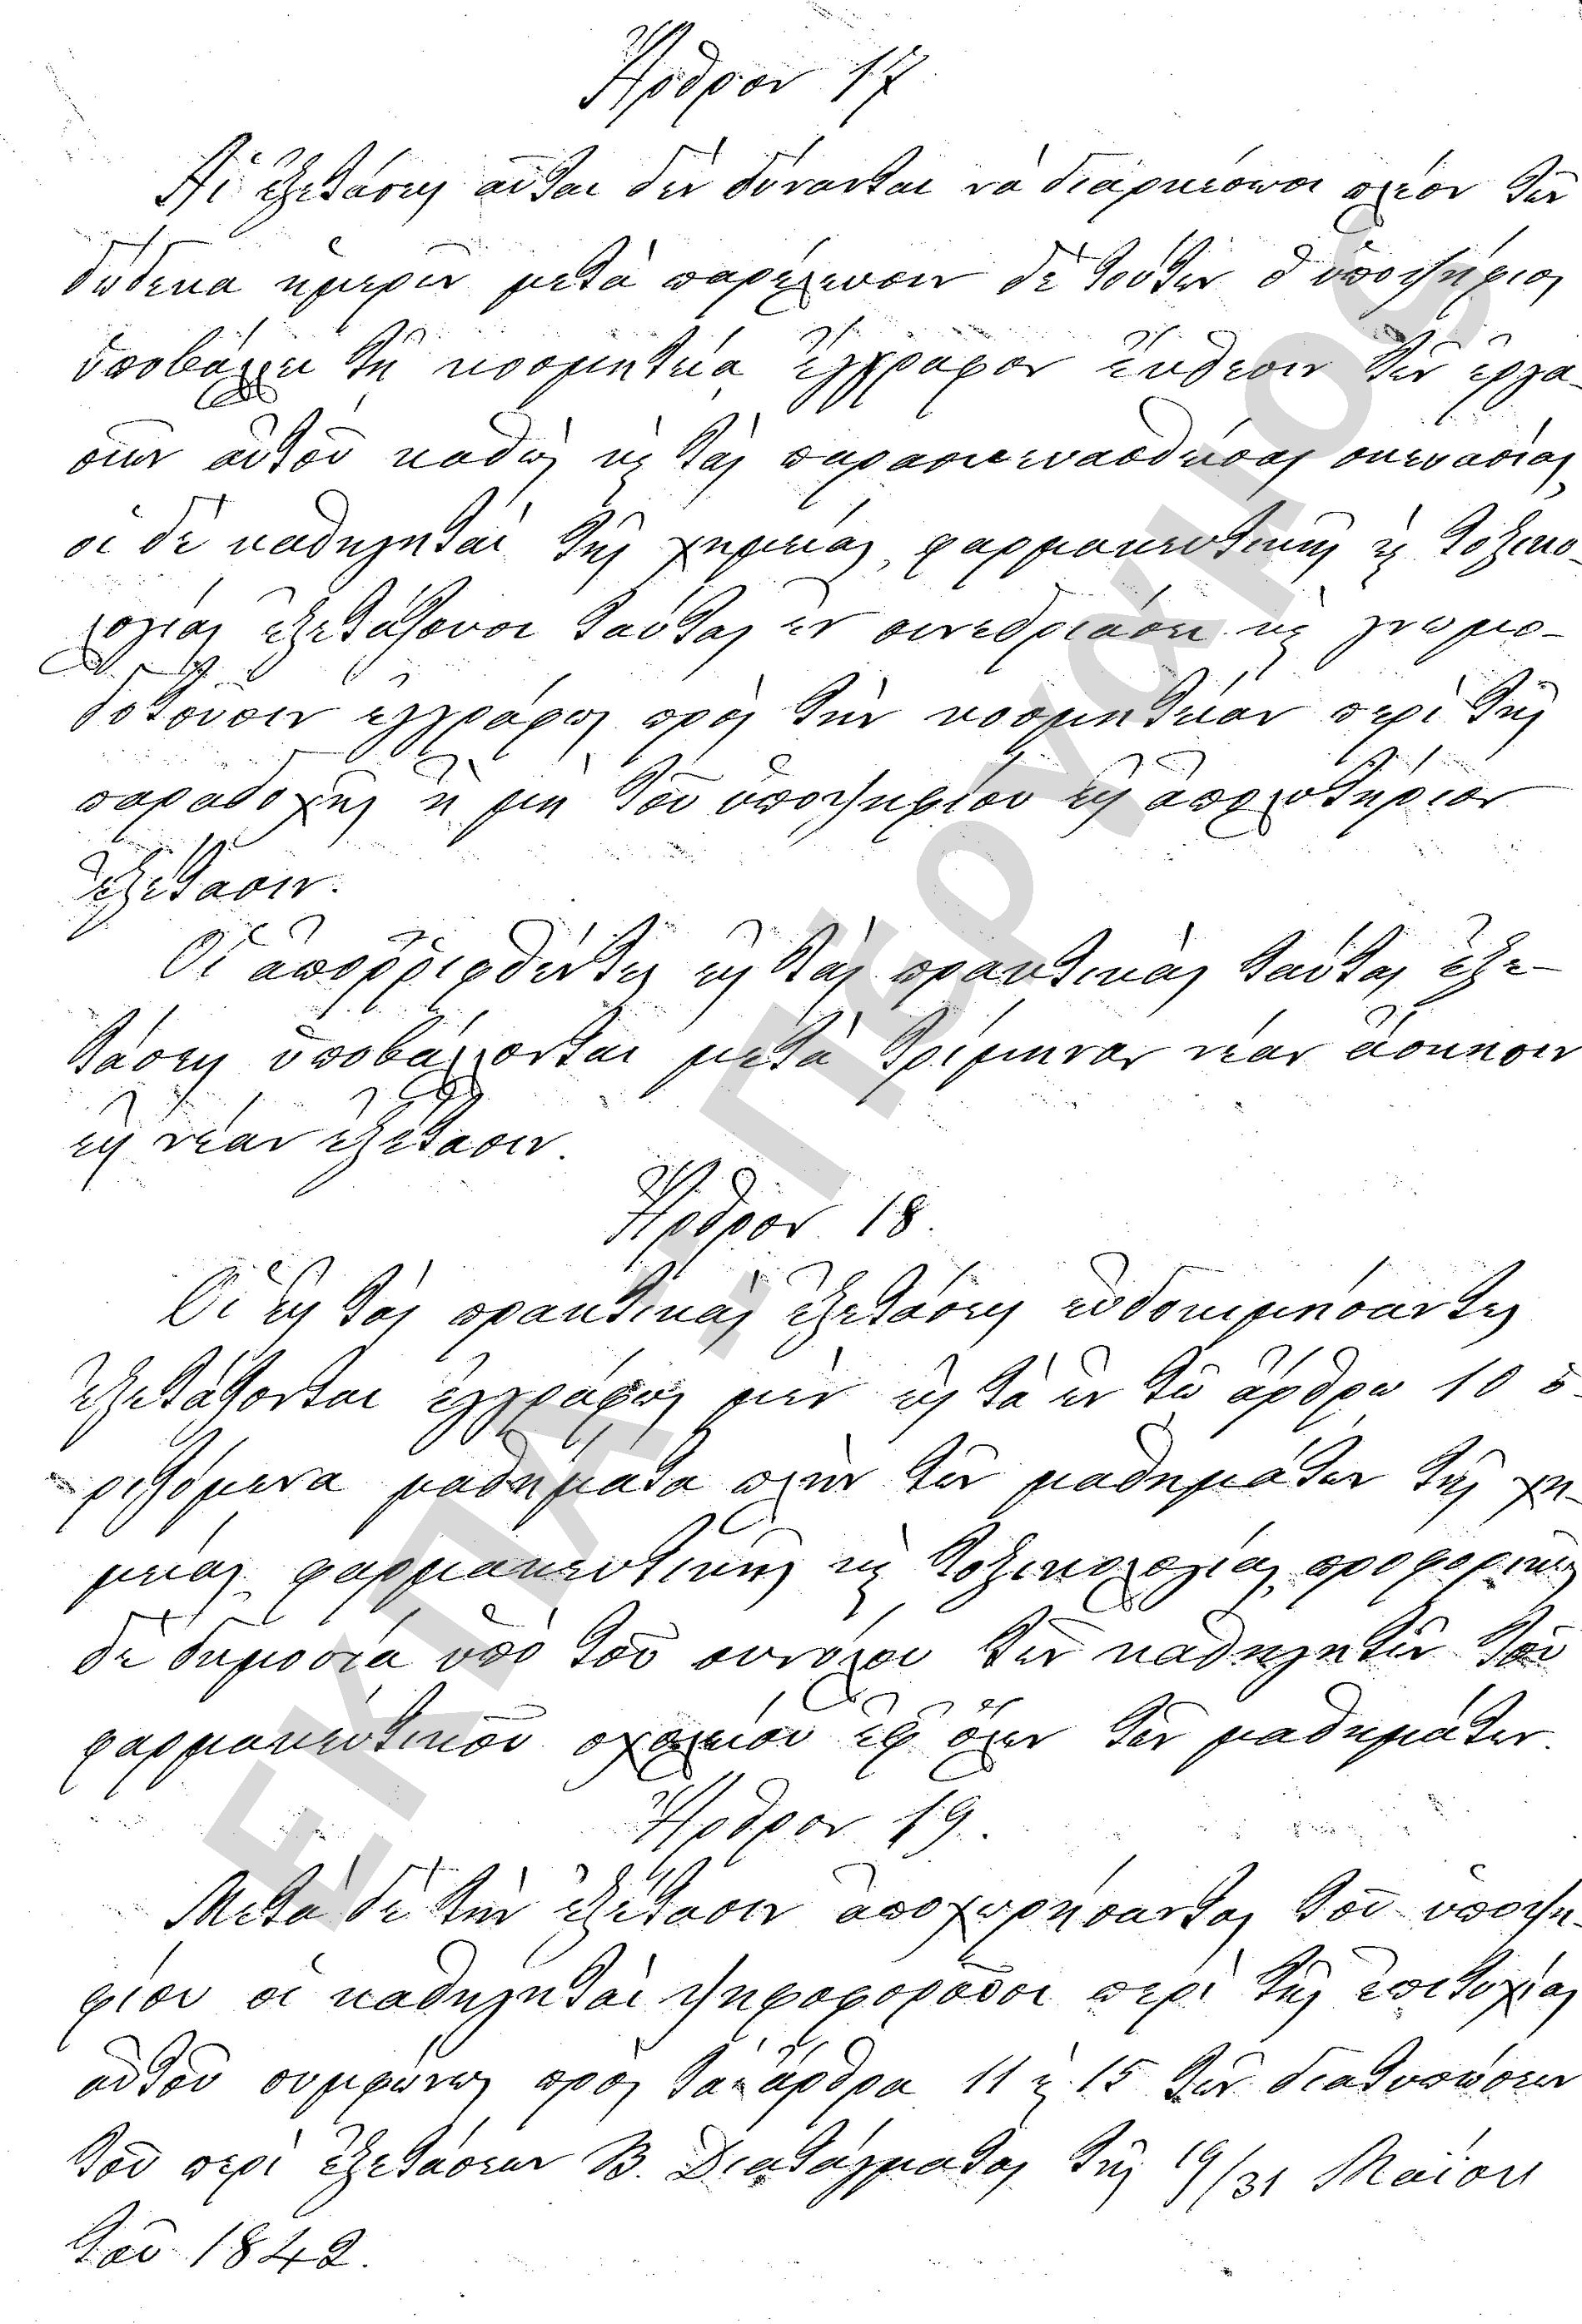 Ἄρθρον 17
Αἱ ἐξετάσεις αὗται δὲν δύνανται νὰ διαρκέσωσι πλέον τῶν
δώδεκα ἡμερῶν μετὰ παρέλευσιν δὲ τούτων ὁ ὑποψήφιος
ὑποβάλλει τῇ κοσμητείᾳ ἔγγραφον ἔκθεσιν τῶν ἐργα-
σιῶν αὐτοῦ καθὼς κ̣ τὰς παρασκευασθείσας σκευασίας,
οἱ δὲ καθηγηταὶ τῆς χημείας, φαρμακευτικῆς κ̣ τοξικο-
λογίας ἐξετάζουσι ταύτας ἐν συνεδριάσει κ̣ γνωμο-
δοτοῦσιν ἐγγράφως πρὸς τὴν κοσμητείαν περὶ τῆς
παραδοχῆς ἢ μὴ τοῦ ὑποψηφίου εἰς ἀπολυτήριον
ἐξέτασιν.
Οἱ ἀποῤῥιφθέντες εἰς τὰς πρακτικὰς ταύτας ἐξε-
τάσεις ὑποβάλλονται μετὰ τρίμηνον νέαν ἄσκησιν
εἰς νέαν ἐξέτασιν.
Ἄρθρον 18.
Οἱ εἰς τὰς πρακτικὰς ἐξετάσεις εὐδοκιμήσαντες
ἐξετάζονται ἐγγράφως μὲν εἰς τὰ ἐν τῷ ἄρθρῳ 10 ὁ-
ριζόμενα μαθήματα πλὴν τῶν μαθημάτων τῆς χη-
μείας, φαρμακευτικῆς κ̣ τοξικολογίας, προφορικῶς
δὲ δημοσίᾳ ὑπὸ τοῦ συνόλου τῶν καθηγητῶν τοῦ
φαρμακευτικοῦ σχολείου ἐφ' ὅλων τῶν μαθημάτων.
Ἄρθρον 19.
Μετὰ δὲ τὴν ἐξέτασιν ἀποχωρήσαντος τοῦ ὑποψη-
φίου οἱ καθηγηταὶ ψηφοφοροῦσι περὶ τῆς ἐπιτυχίας
αὐτοῦ συμφώνως πρὸς τὰ ἄρθρα 11 κ̣ 15 τῶν διατυπώσεων
τοῦ περὶ ἐξετάσεων Β. Διατάγματος τῆς 19/31 Μαΐου
τοῦ 1842.
ΕΚΠΑ - Πέργαμος